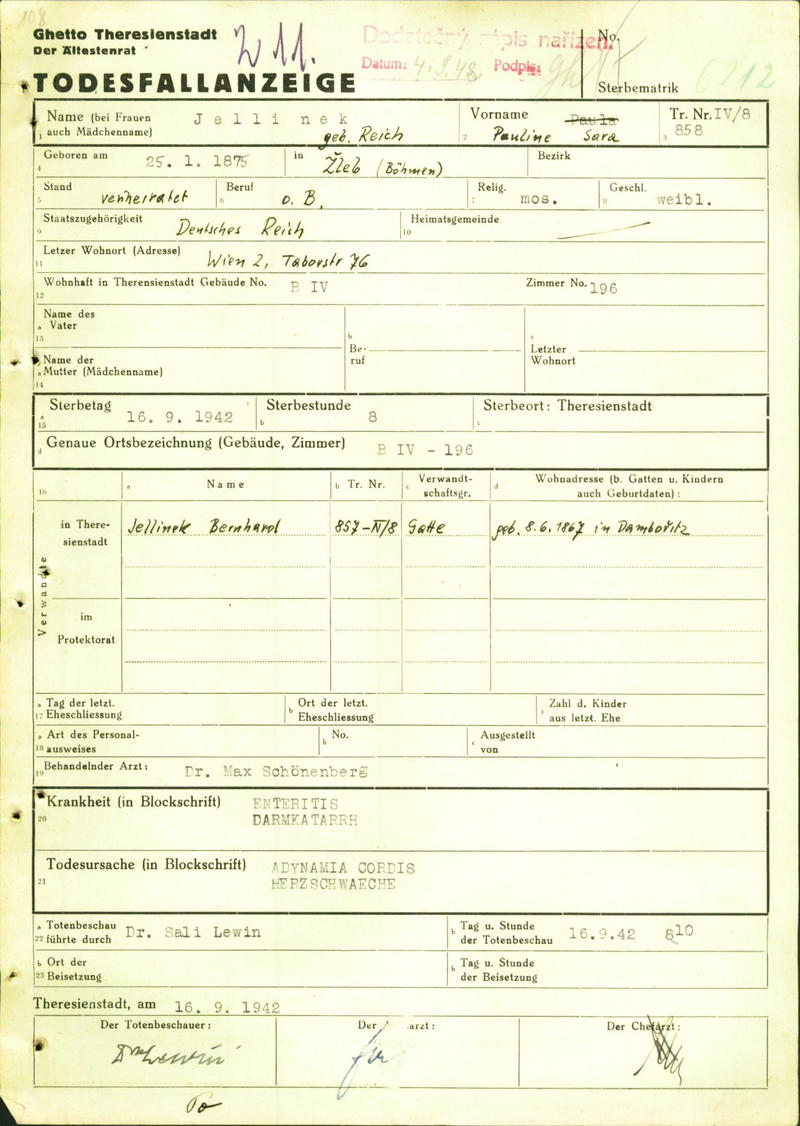 108
Ghetto Theresienstadt
Der Ältestenrat
W 11.
Dodatečný zápis nařízen.
Datum: 4.9.48 Podpis:
No.
Sterbematrik
6212
TODESFALLANZEIGE
Name (bei Frauen
1 auch Mädchenname)
Jellinek
geb. Reich
Vorname
2
Paula
Pauline Sara
Tr. Nr. IV/8
3 858
Geboren am
4
25. 1. 1875
in Žleb (Böhmen)
Bezirk
Stand
5 verheiratet
Beruf
6 o. B.
Relig.
7 mos.
Geschl.
8 weibl.
Staatszugehörigkeit
9 Deutsches Reich
Heimatsgemeinde
10
Letzer Wohnort (Adresse)
11 Wien 2, Taborstr 76
Wohnhaft in Theresienstadt Gebäude No. B IV
12
Zimmer No. 196
Name des
a Vater
13
Name der
a Mutter (Mädchenname)
14
b
Be-
ruf
c
Letzter
Wohnort
a Sterbetag
15 16. 9. 1942
b Sterbestunde 8
c Sterbeort: Theresienstadt
d Genaue Ortsbezeichnung (Gebäude, Zimmer) B IV - 196
16
a Name
b Tr. Nr.
c Verwandt-
schaftsgr.
d Wohnadresse (b. Gatten u. Kindern
auch Geburtdaten) :
Verwandte
in There-
sienstadt
Jellinek Bernhard 857-IV/8 Gatte geb. 8. 6. 1867 in Damboritz
im
Protektorat
a Tag der letzt.
17 Eheschliessung
b Ort der letzt.
Eheschliessung
c Zahl d. Kinder
aus letzt. Ehe
a Art des Personal-
18 ausweises
b No.
c Ausgestellt
von
19 Behandelnder Arzt: Dr. Max Schönenberg
Krankheit (in Blockschrift)
20
ENTERITIS
DARMKATARRH
Todesursache (in Blockschrift)
21
ADYNAMIA CORDIS
HERZSCHWAECHE
a Totenbeschau
22 führte durch Dr. Sali Lewin
b Tag u. Stunde
der Totenbeschau 16.9.42 810
b Ort der
23 Beisetzung
b Tag u. Stunde
der Beisetzung
Theresienstadt, am 16. 9. 1942
Der Totenbeschauer:
Dr Lewin
Der arzt:
Der Chefarzt: